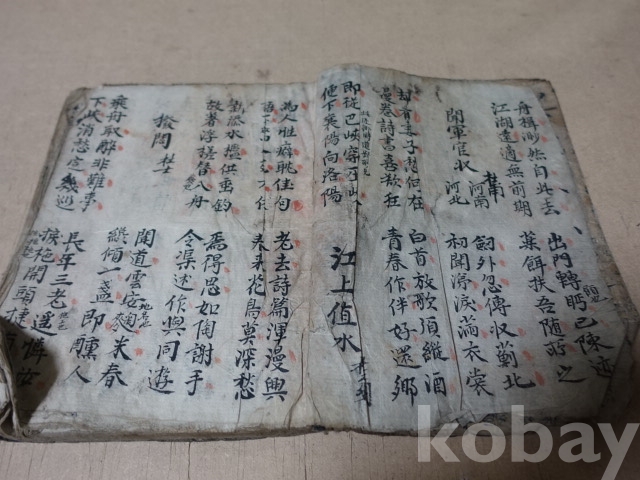 舟楫渺然自此去
江湖遠適無前期
出門轉眄已陳迹
藥餌扶吾隨所之
聞軍官収河南河北
劍外忽傳収薊北
初聞涕淚滿衣裳
却看妻子愁何在
漫卷詩書喜欲狂
白首放歌須縱酒
青春作伴好還鄉
即從巴峽穿巫峽
便下襄陽向洛陽
江上值水
為人性癖耽佳句
老去詩篇渾漫興
春來花鳥莫深愁
新添水檻供垂釣
故著浮槎替入舟
焉得思如陶謝手
令渠述作與同遊
撥悶
聞道雲安麴米春
纔傾一盞即醺人
乘舟取醉非難事
下峽消愁定幾巡
長年三老遙憐汝
捩柁開頭捷有
kobay